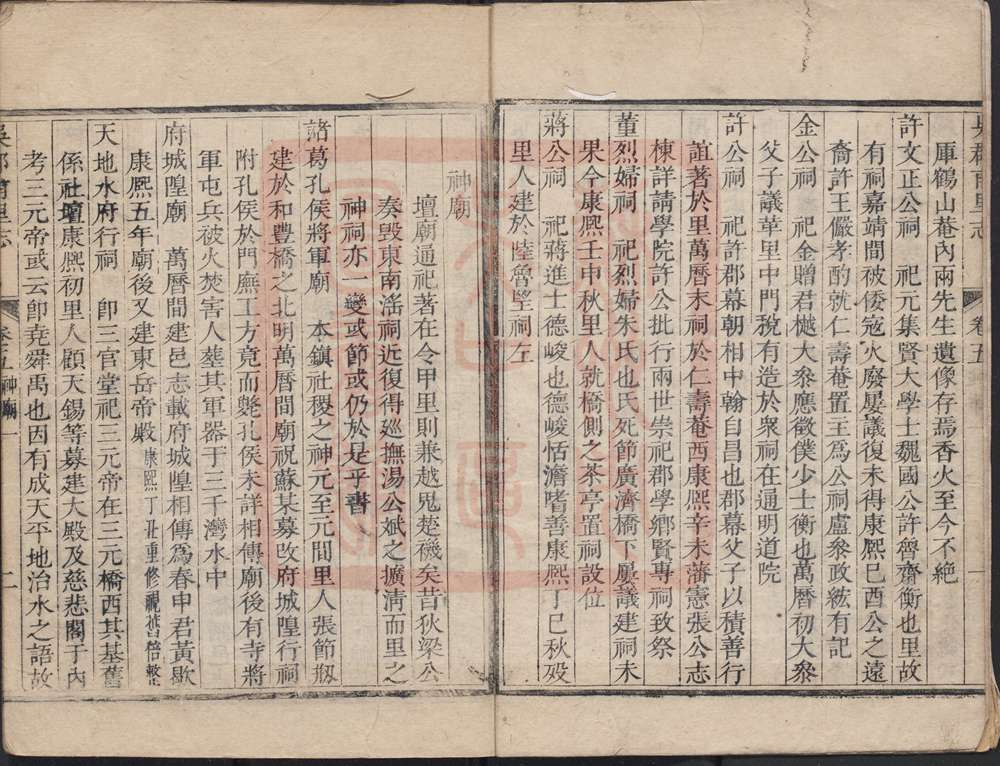 吳郡甫里志 卷五 一
厙鶴山菴內兩先生遺像存焉香火至今不絶
許文正公祠 祀元集賢大學士魏國公許魯齋衡也里故
有祠嘉靖間被倭寇火廢屢議復未得康熙已酉公之遠
裔許王儼孝酌就仁壽菴置王爲公祠盧叅政綋有記
金公祠 祀金贈君樾大叅應徵僕少士衡也萬曆初大叅
父子議華里中門稅有造於衆祠在通明道院
許公祠 祀許郡幕朝相中翰自昌也郡幕父子以積善行
誼著於里萬曆末祠於仁壽菴西康熙辛未藩憲張公志
棟詳請學院許公批行兩世崇祀郡學鄉賢專祠致祭
董烈婦祠 祀烈婦朱氏也氏死節廣濟橋下屢議建祠未
果今康熙壬申秋里人就橋側之茶亭置祠設位
蔣公祠 祀蔣進士德峻也德峻恬澹嗜善康熙丁巳秋歿
里人建於陸魯望祠左
神廟
壇廟通祀著在令甲里則兼越鬼楚禨矣昔狄梁公
奏毀東南滛祠近復得廵撫湯公斌之擴淸而里之
神祠亦一變或節或仍於是乎書
諸葛孔侯將軍廟 本鎮社稷之神元至元間里人張節剏
建於和豐橋之北明萬曆間廟祝蘇某募改府城隍行祠
附孔侯於門廡工方竟而斃孔侯未詳相傳廟後有寺將
軍屯兵被火焚害人塟其軍器于三千灣水中
府城隍廟 萬曆間建邑志載府城隍相傳爲春申君黃歇
康熙五年廟後又建東岳帝殿 康熙丁丑重修視舊倍整
天地水府行祠 卽三官堂祀三元帝在三元橋西其基舊
係社壇康熙初里人顧天錫等募建大殿及慈悲閣于內
考三元帝或云卽堯舜禹也因有成天平地治水之語故
吳郡甫里志 卷之五 神廟 一 二